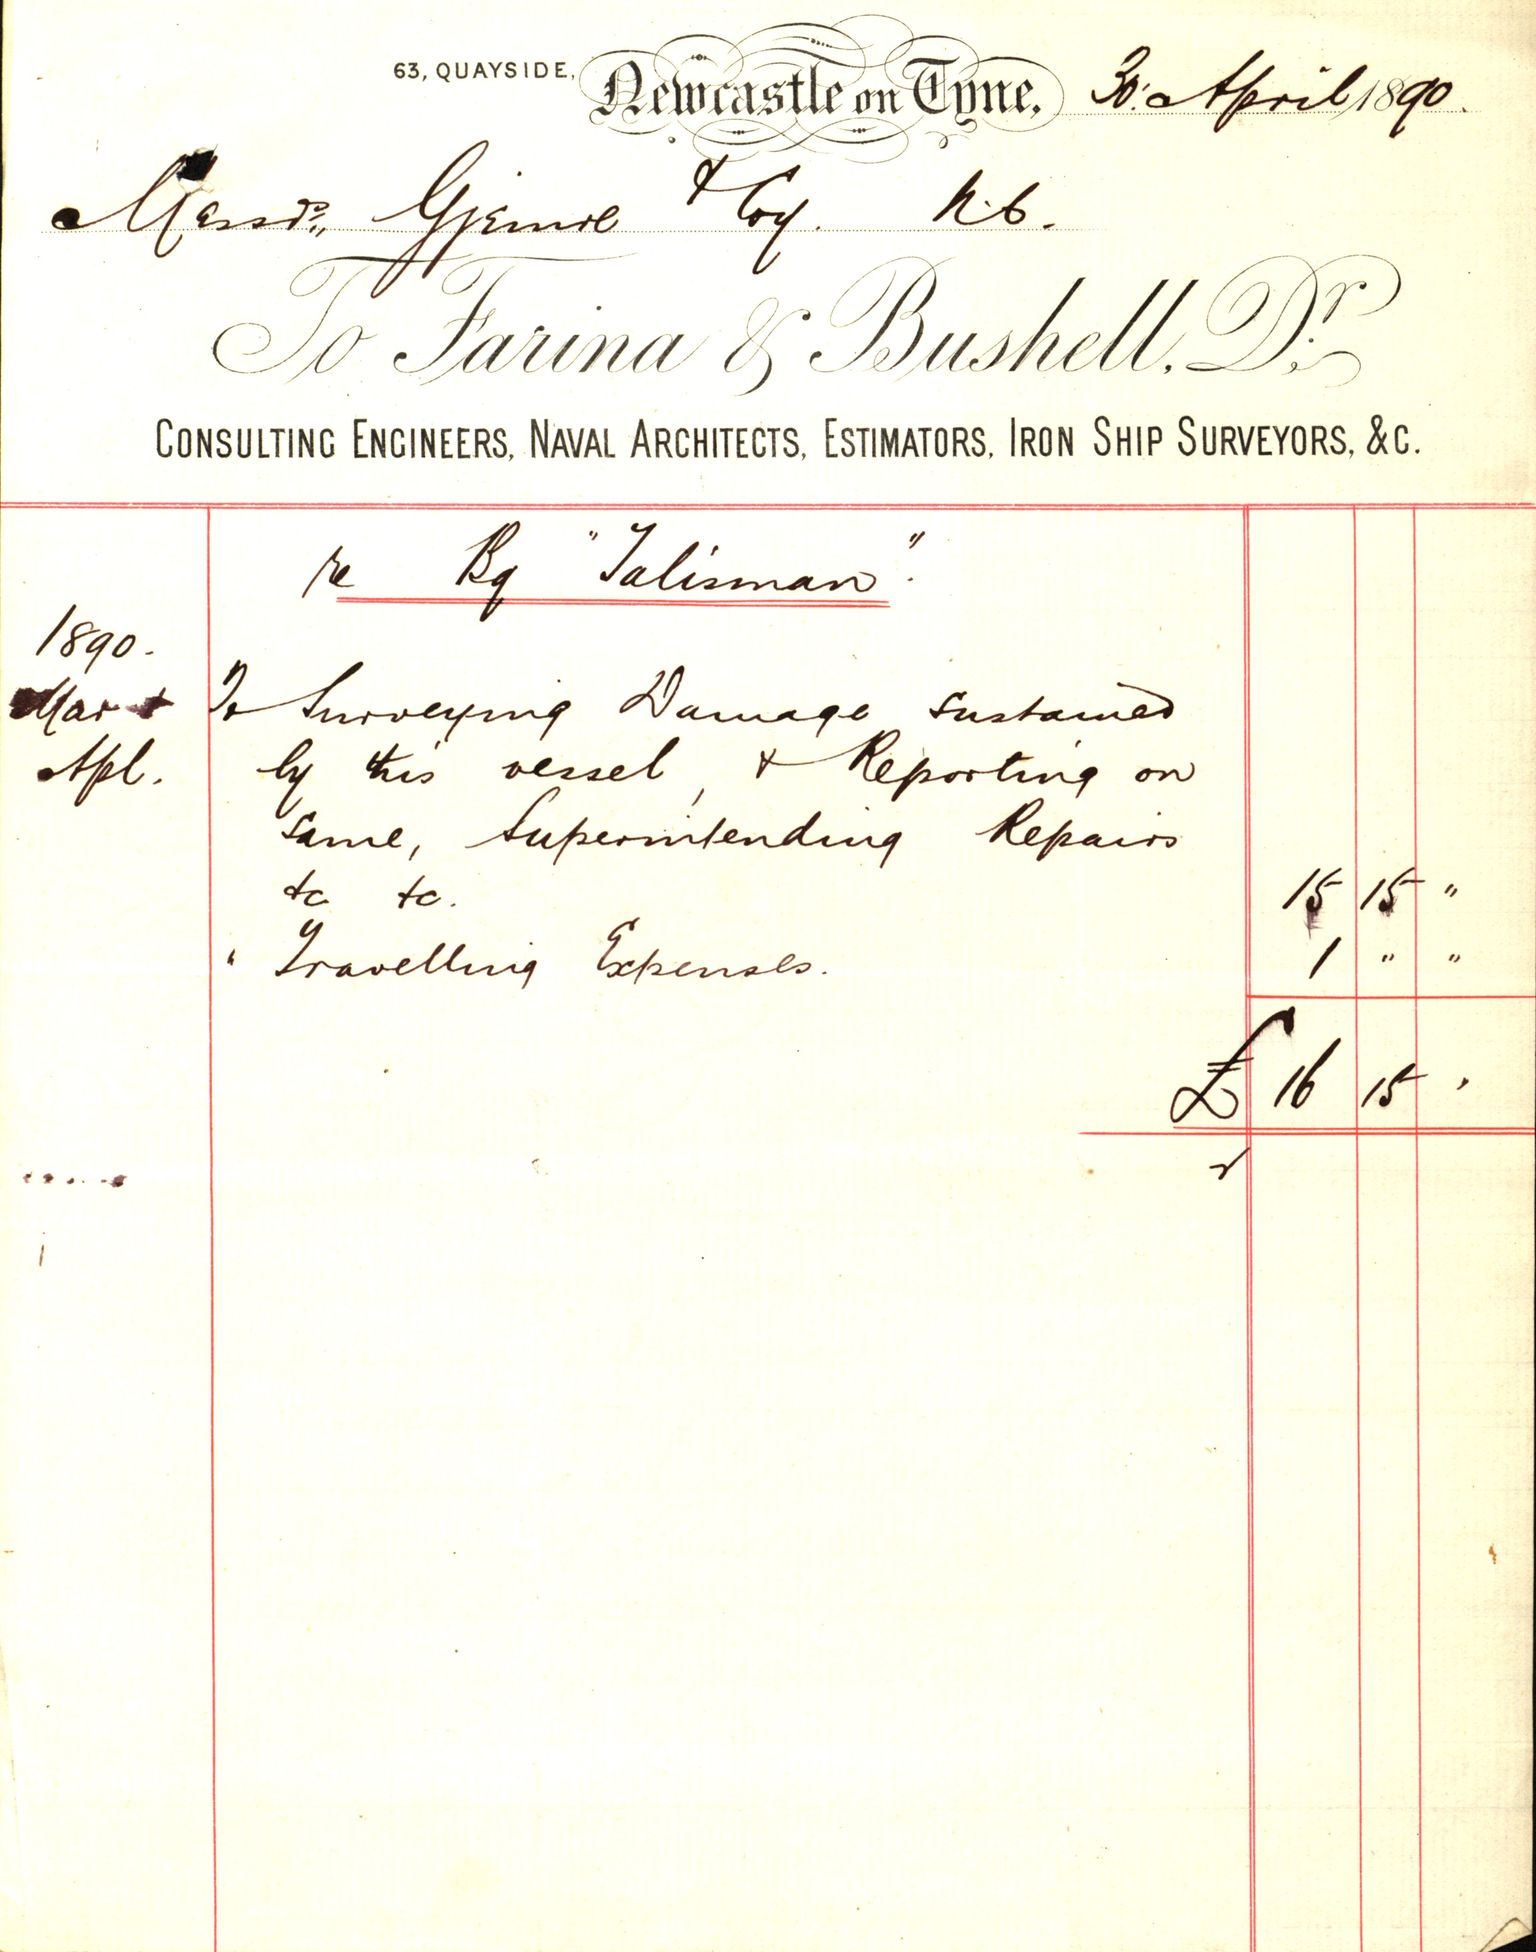 63, QUAYSIDE, Newcastle on Tyne, 30. April 1890.
Messrs., & Coy. N.C.
To Farina & Bushell. Dr.
CONSULTING ENGINEERS, NAVAL ARCHITECTS, ESTIMATORS, IRON SHIP SURVEYORS, &C.
re Bq "Talisman".
1890.
Mar & To Surveying Damage sustained
Apl. by this vessel, & Reporting on
same, Superintending Repairs
&c &c. 15 15 "
" Travelling Expenses. 1 " "
£ 16 15 "